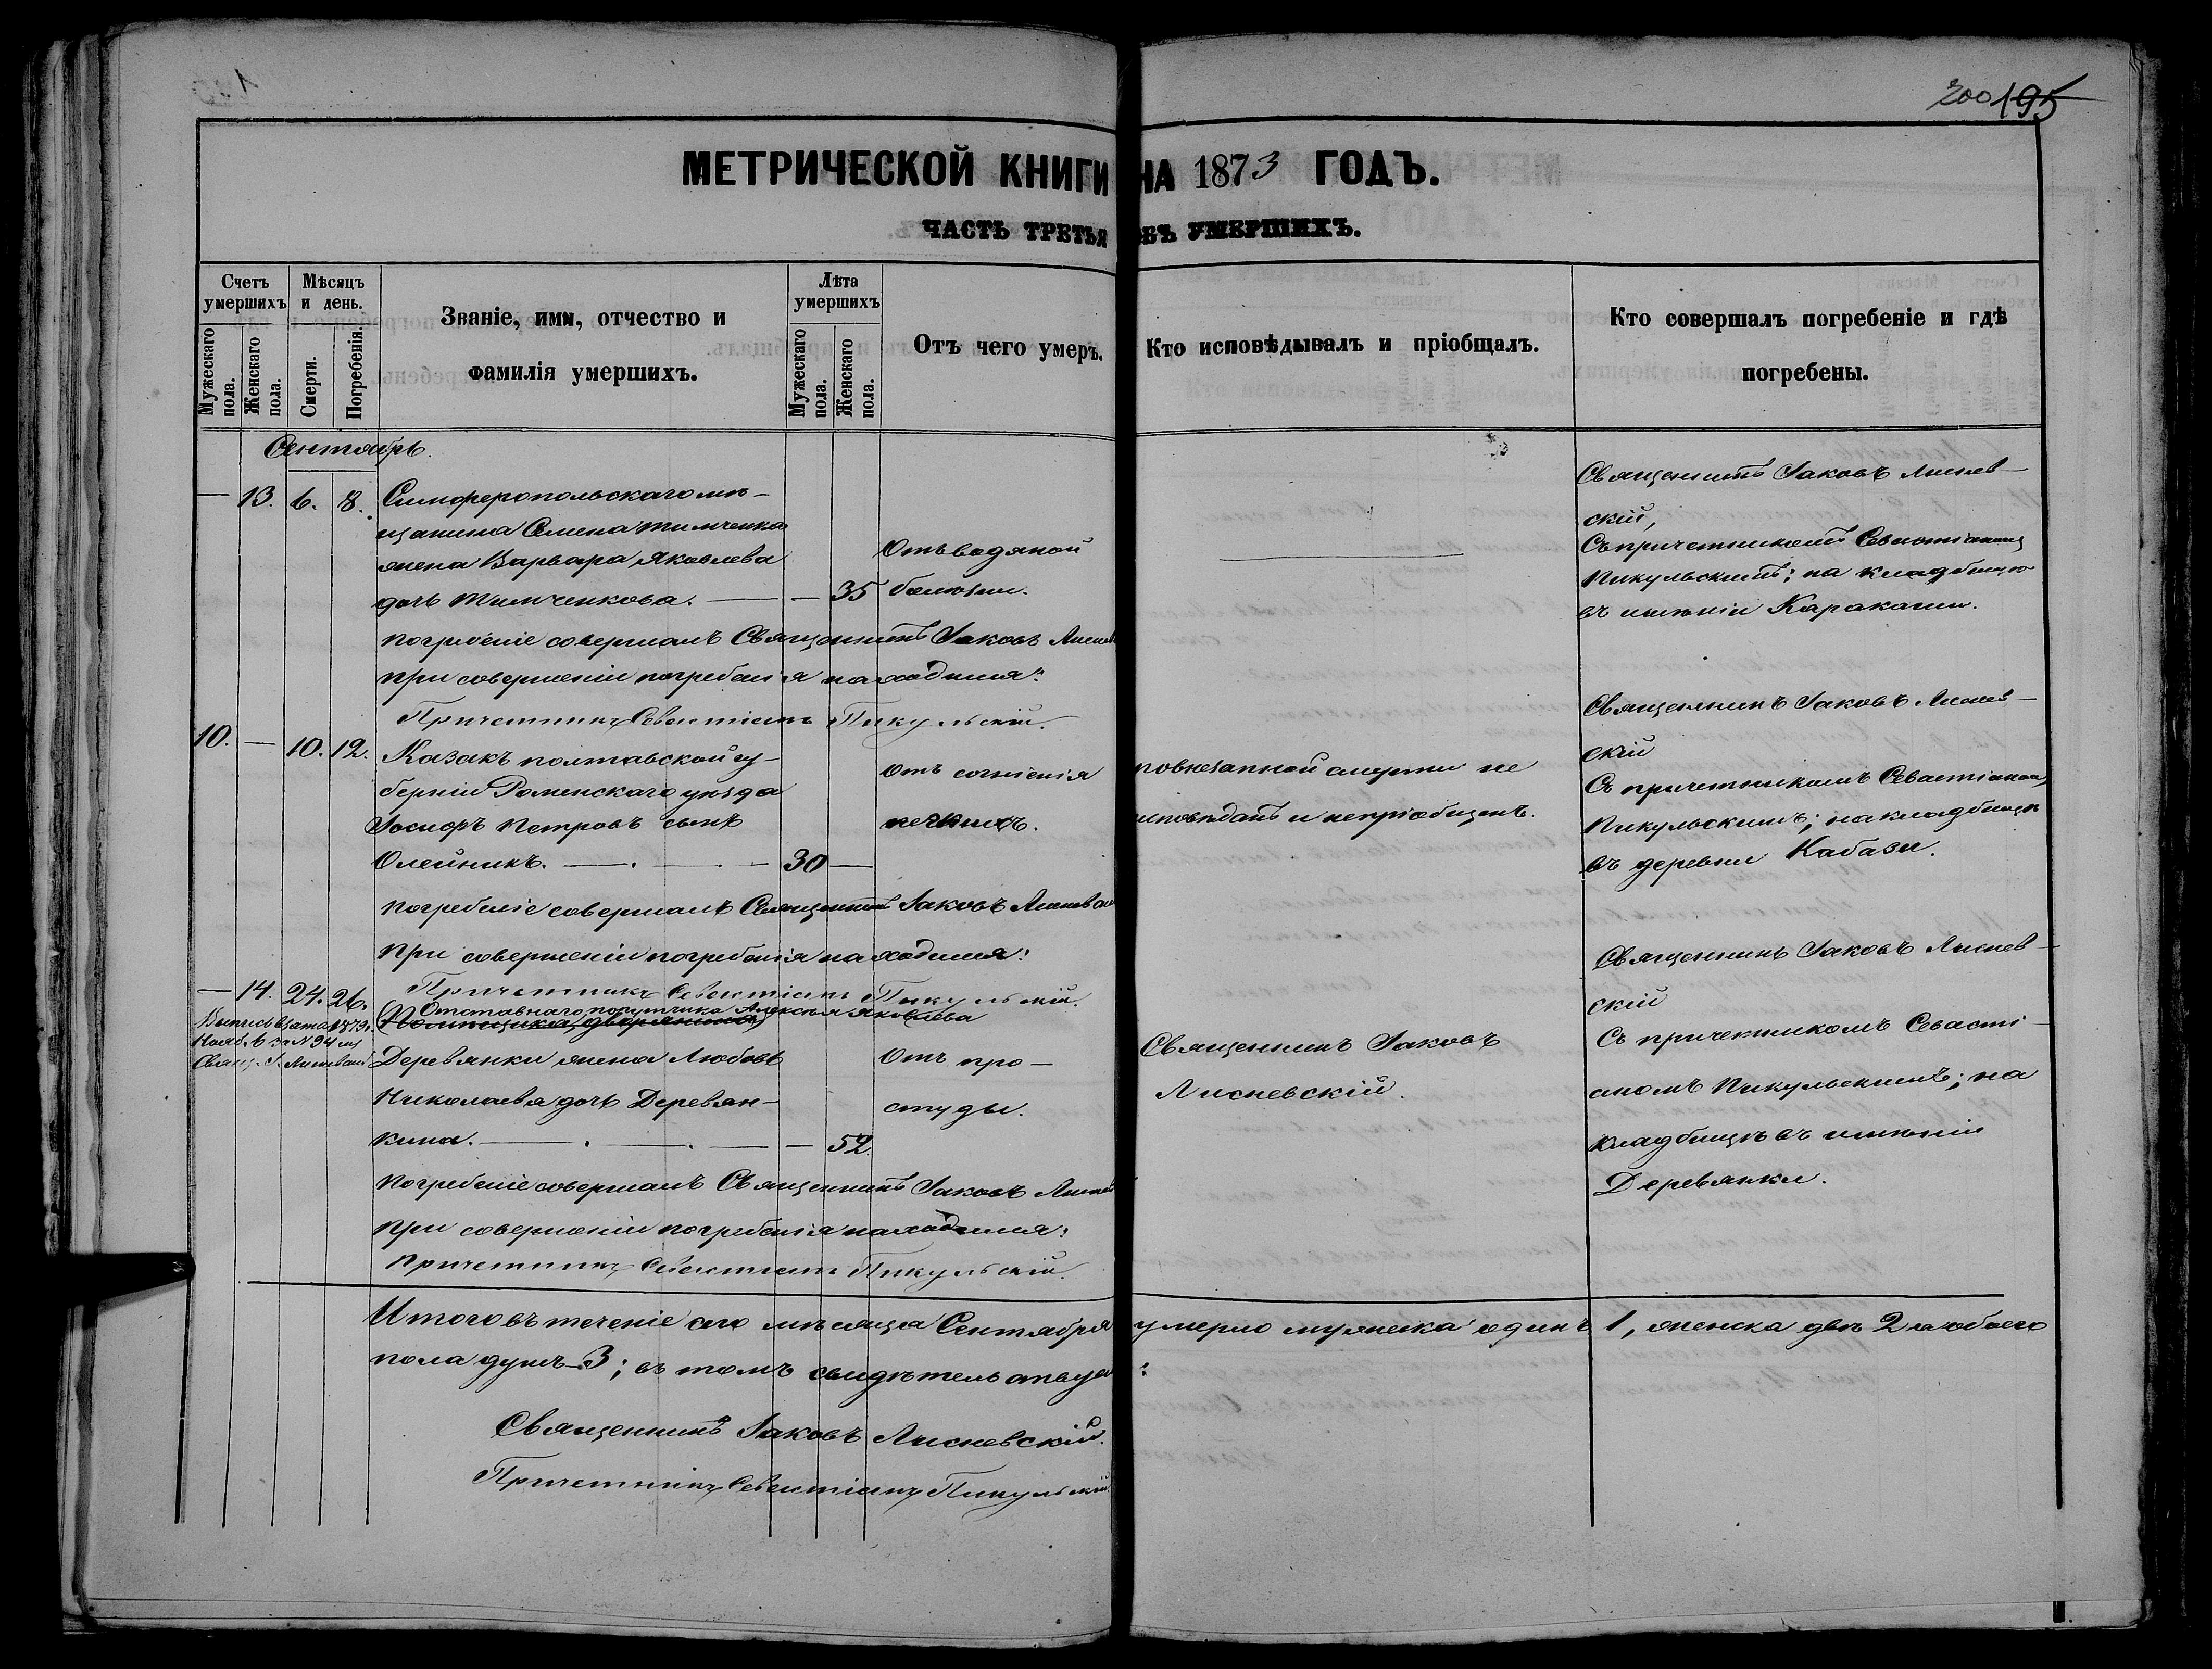 200 195
МЕТРИЧЕСКОЙ КНИГИ НА 1873 ГОДЪ.
ЧАСТЬ ТРЕТЬЯ ОБЪ УМЕРШИХЪ.
Счетъ умершихъ
Мужескаго пола.
Женскаго пола.
Мѣсяцъ и день.
Смерти.
Погребенія.
Званіе, имя, отчество и
фамилія умершихъ.
Лѣта умершихъ
Мужескаго пола.
Женскаго пола.
Отъ чего умеръ.
Кто исповѣдывалъ и пріобщалъ.
Кто совершалъ погребеніе и гдѣ
погребены.
Сентябрь.
— 13. 6. 8.
Симферопольскаго мѣ-
щанина Семена Тимченка
жена Варвара Яковлева
дочь Тимченкова. — — 35
Отъ водяной
болѣзни.
Священникъ Іаковъ Лиснев-
скій,
Съ причетникомъ Севастіаномъ
Пикульскимъ; на кладбищѣ
въ имѣніи Каракаши.
погребеніе совершалъ Священникъ Іаковъ Лиснев
при совершеніи погребенія находился:
Причетникъ Севастіанъ Пикульскій.
10. — 10. 12.
Казакъ полтавской гу-
берніи Роменскаго уѣзда
Іосифъ Петровъ сынъ
Олейникъ. — 30 —
Отъ согніенія
печкихъ.
по внезапной смерти не
исповѣданъ и непріобщенъ.
Священникъ Іаковъ Лиснев-
скій
Съ причетникомъ Севастіаномъ
Пикульскимъ; на кладбищѣ
въ деревни Кабази.
погребеніе совершалъ Священникъ Іаковъ Лиснев
при совершеніи погребенія находился:
Причетникъ Севастіанъ Пикульскій.
— 14. 24. 26.
Выпись взята 1879.
Нояб. за N 94
Свящ. І. Лисневскій
Отставнаго порутчика Алексѣя Яковлева
(Помѣщика, дворянина)
Деревянки жена Любовь
Николаева дочь Деревян-
кина. — — 52.
Отъ про-
студы.
Священникъ Іаковъ
Лисневскій.
Священникъ Іаковъ Лиснев-
скій
Съ причетникомъ Севасті-
аномъ Пикульскимъ; на
кладбищѣ въ имѣніи
Деревянки.
погребеніе совершалъ Священникъ Іаковъ Лиснев
при совершеніи погребенія находился:
Причетникъ Севастіанъ Пикульскій.
Итого въ теченіе сего мѣсяца Сентября умерло мужеска одинъ 1, женска двѣ 2 а обоего
пола душъ 3; въ томъ свидѣтельствуемъ:
Священникъ Іаковъ Лисневскій.
Причетникъ Севастіанъ Пикульскій